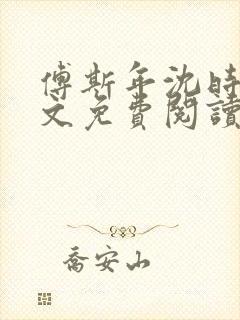 傅斯年沈時
文免費閱讀
喬安山